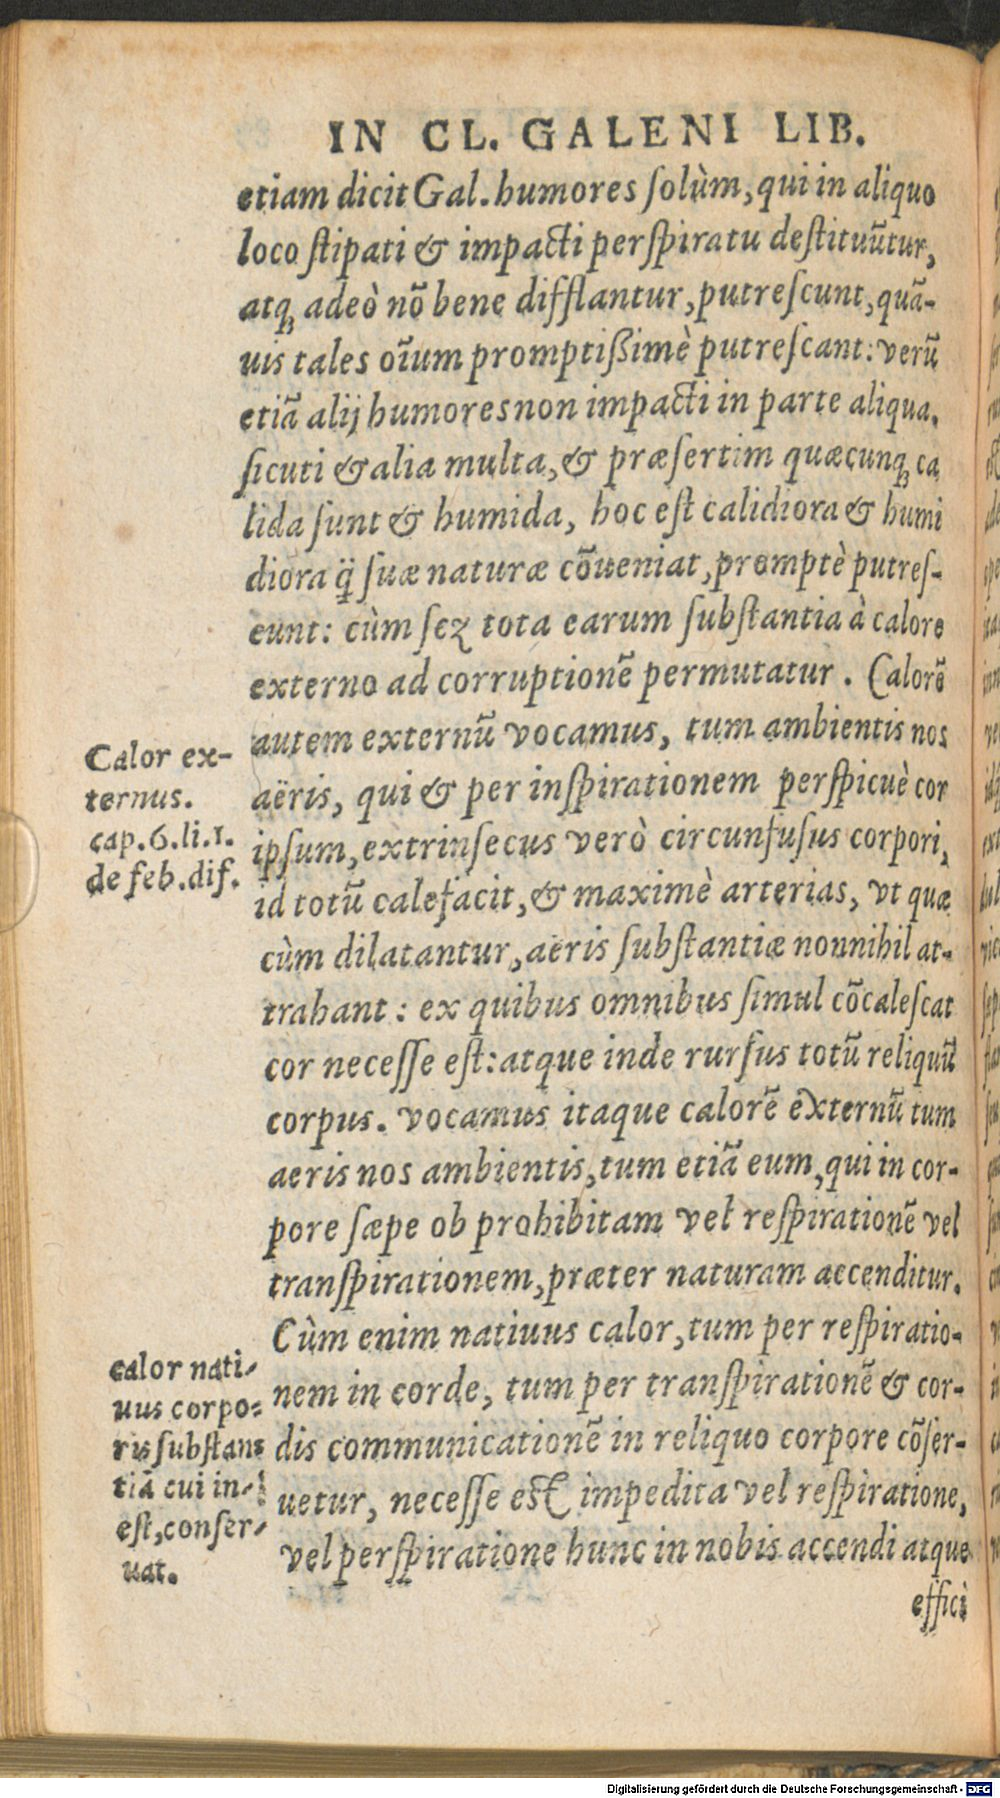 IN CL. GALENI LIB.
etiam dicit Gal. humores ſolùm, qui in aliquo
loco ſtipati & impacti perſpiratu deſtituūtur,
atq; adeò nō bene difflantur, putreſcunt, quā-
uis tales oīum promptißimè putreſcant: verū
etiā alij humores non impacti in parte aliqua.
ſicuti & alia multa, & præſertim quæcunq; ca
lida ſunt & humida, hoc eſt calidiora & humi
diora q̄ ſuæ naturæ cōueniat, promptè putreſ-
cunt: cùm ſez tota earum ſubſtantia à calore
externo ad corruptionē permutatur. Calorē
autem externū vocamus, tum ambientis nos
aëris, qui & per inſpirationem perſpicuè cor
ipſum, extrinſecus verò circunfuſus corpori,
id totū calefacit, & maximè arterias, vt quæ
cùm dilatantur, aëris ſubſtantiæ nonnihil at-
trahant: ex quibus omnibus ſimul cōcaleſcat
cor neceſſe eſt: atque inde rurſus totū reliquū
corpus. vocamus itaque calorē externū tum
aeris nos ambientis, tum etiā eum, qui in cor-
pore ſæpe ob prohibitam vel reſpirationē vel
tranſpirationem, præter naturam accenditur.
Cùm enim natiuus calor, tum per reſpiratio-
nem in corde, tum per tranſpirationē & cor-
dis communicationē in reliquo corpore cōſer-
uetur, neceſſe eſt impedita vel reſpiratione,
vel perſpiratione hunc in nobis accendi atque
effici
Calor ex-
ternus.
cap. 6. li. 1.
de feb. dif.
calor nati-
uus corpo-
ris ſubſtan-
tiā cui in-
eſt, conſer-
uat.
Digitalisierung gefördert durch die Deutsche Forschungsgemeinschaft - DFG